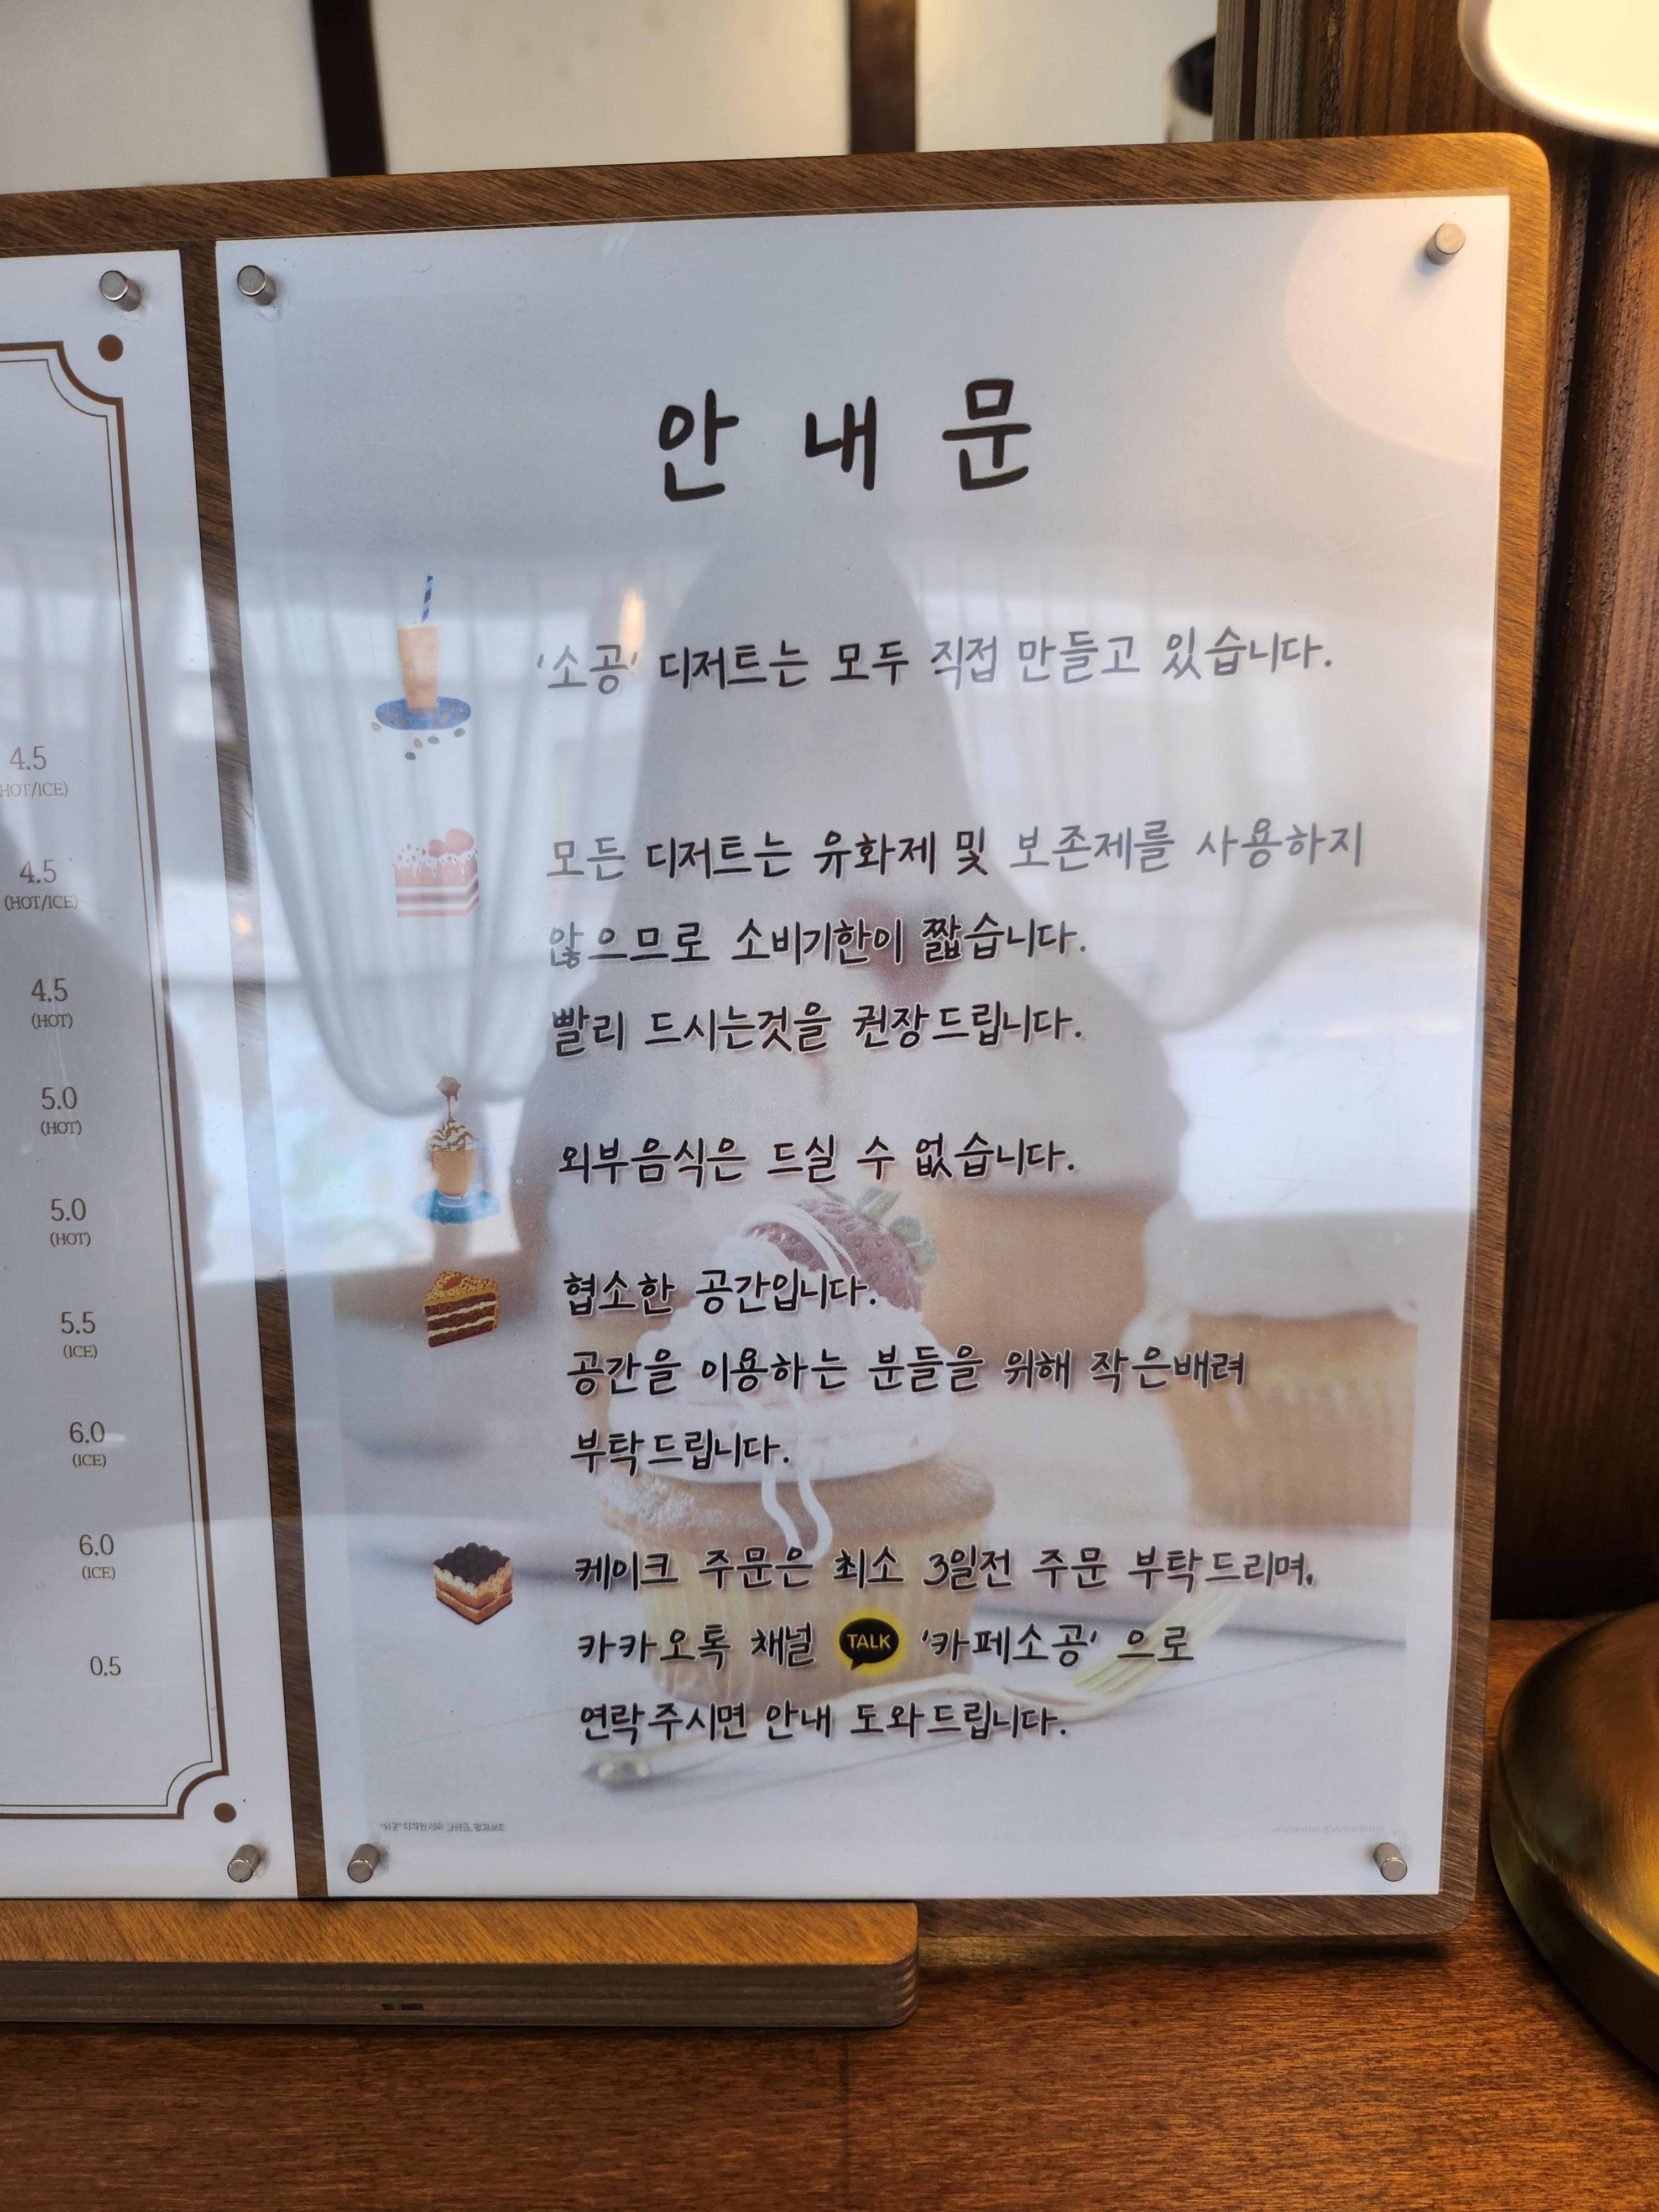 4.5
(HOT/ICE)
4.5
(HOT/ICE)
4.5
(HOT)
5.0
(HOT)
5.0
(HOT)
5.5
(ICE)
6.0
(ICE)
6.0
(ICE)
0.5
안내문
'소공' 디저트는 모두 직접 만들고 있습니다.
모든 디저트는 유화제 및 보존제를 사용하지
않으므로 소비기한이 짧습니다.
빨리 드시는것을 권장드립니다.
외부음식은 드실 수 없습니다.
협소한 공간입니다.
공간을 이용하는 분들을 위해 작은배려
부탁드립니다.
케이크 주문은 최소 3일전 주문 부탁드리며,
카카오톡 채널 TALK '카페소공' 으로
연락주시면 안내 도와드립니다.